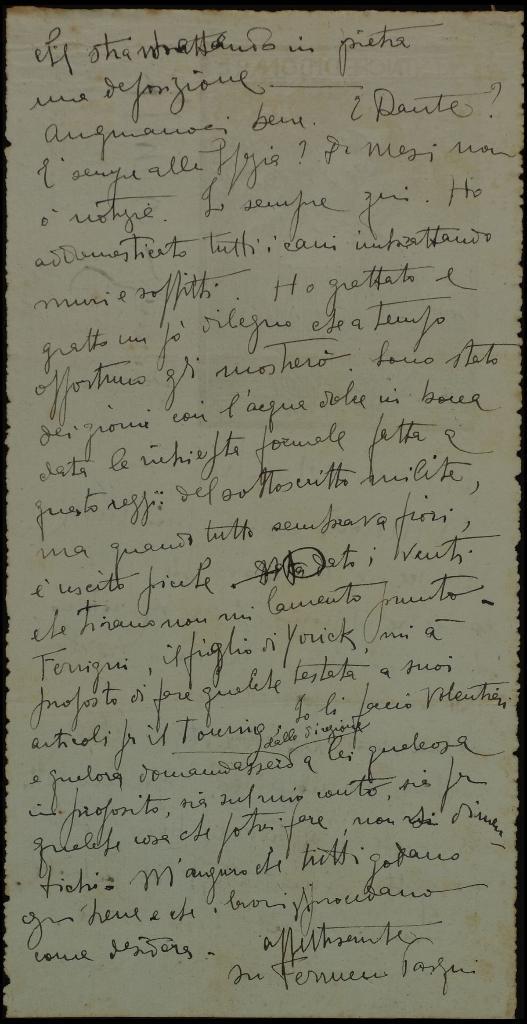 sta trattando in pietra
una deposizione
Auguriamoci bene. E Dante?
È sempre alla Spezia? Da mesi non
ò notizie. Io sempre qui. Ho
addomesticato tutti i cani imbrattando
muri e soffitti. Ho grattato e
gratto un pò di legno che a tempo
opportuno gli mostrerò. Sono stato
dei giorni con l'acqua dolce in bocca
data la richiesta formale fatta a
questo regg: del sottoscritto milite,
ma quando tutto sembrava fiori,
è uscito picche. Dato i venti
che tirano non mi lamento punto.
Ferrigni, il figlio di Yorick, mi à
proposto di fare qualche testata a suoi
articoli per il Touring. Io li faccio volentieri
dalla direzione
e qualora domandassero a lei qualcosa
in proposito, sia sul mio conto, sia per
qualche cosa che potrei fare, non si dimen-
tichi. M'auguro che tutti godano
ogni bene e che i lavori procedano
come desidera.
affettuosamente
suo Ferruccio Pasqui